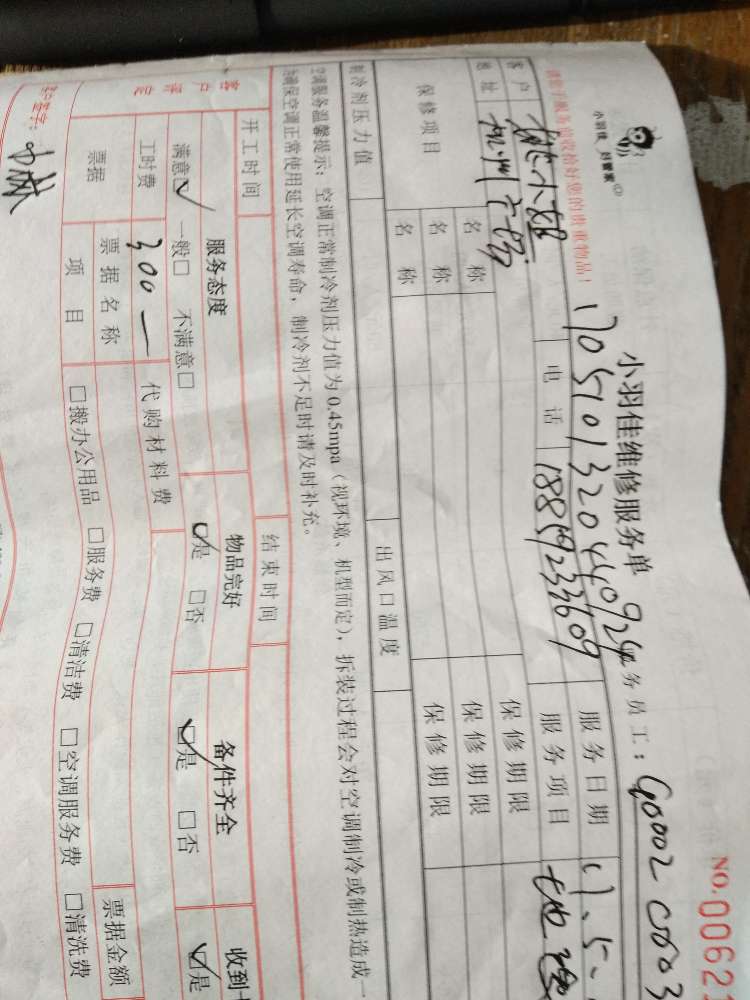 小羽佳 好管家
NO.0062
小羽佳维修服务单
服务员工：G0002 C003
请您于服务前收拾好您的贵重物品！
170510132044092
客户 小姐 电话 18859233609 服务日期 17.5.
地址 服务项目
保修项目 名称 保修期限
名称 保修期限
名称 保修期限
制冷剂压力值 出风口温度
空调服务温馨提示：空调正常制冷剂压力值为0.45mpa（视环境、机型而定），拆装过程会对空调制冷或制热造成一
确保空调正常使用延长空调寿命，制冷剂不足时请及时补充。
开工时间 结束时间
客户评定 服务态度 物品完好 备件齐全 收到
满意☑ 一般□ 不满意□ ☑是 □否 ☑是 □否 ☑是
工时费 300 — 代购材料费
票据 票据名称 票据金额
项目 □搬办公用品 □服务费 □清洁费 □空调服务费 □清洗费
签字：